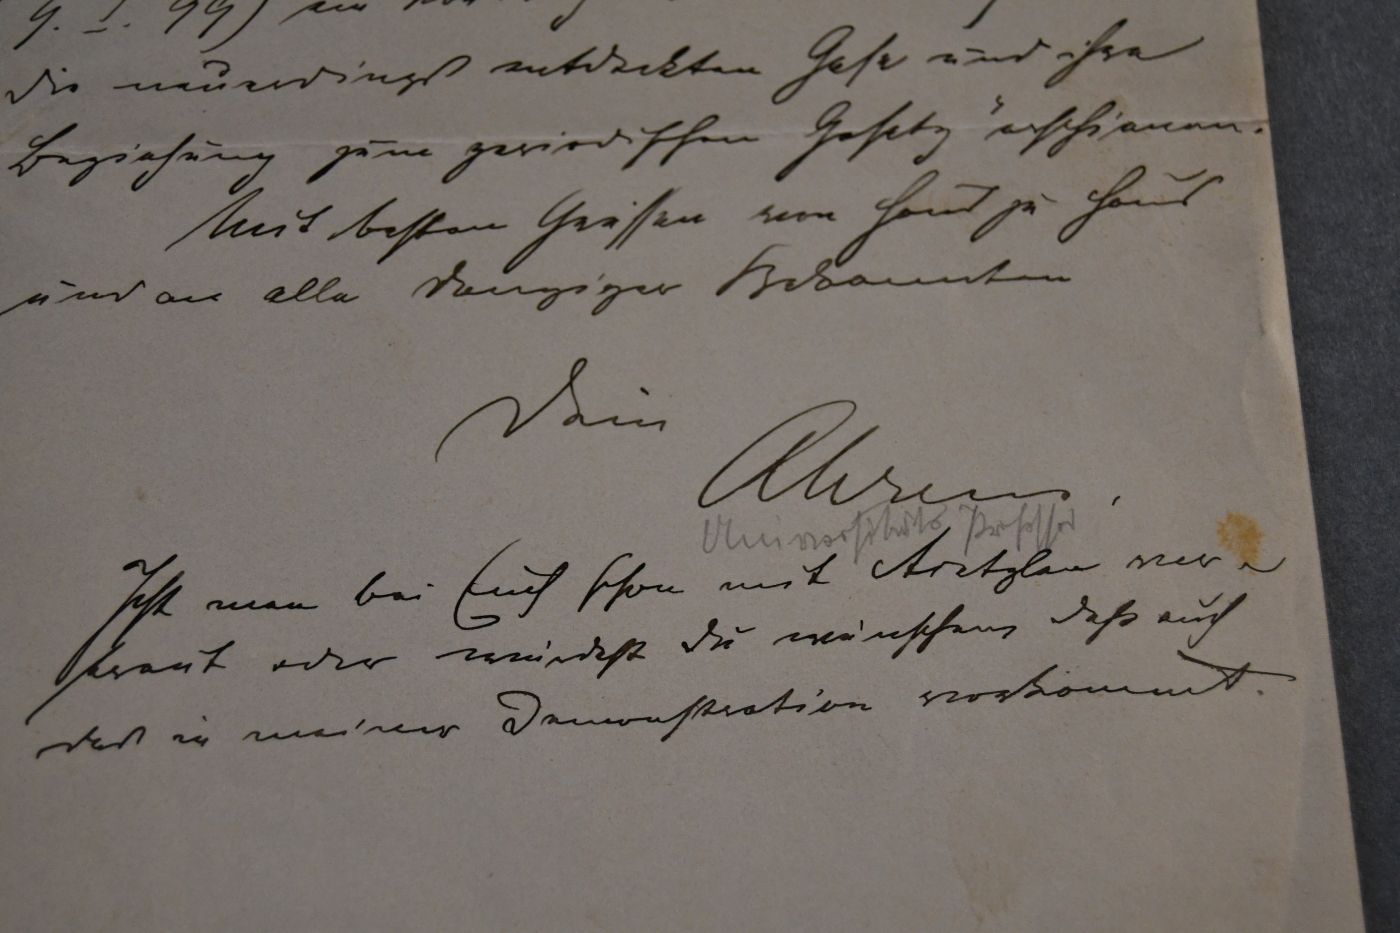 9. I. 99) ein
die neuerdings entdeckten Gase und ihre
Beziehung zum periodischen Gesetz" erschienen.
Mit besten Grüssen von Haus zu Haus
und an alle Danziger Bekannten
Dein
Ahrens.
Universitäts Professor
Ist man bei Euch schon mit Acetylen ver-
traut oder würdest Du wünschen daß auch
das in meiner Demonstration vorkommt.